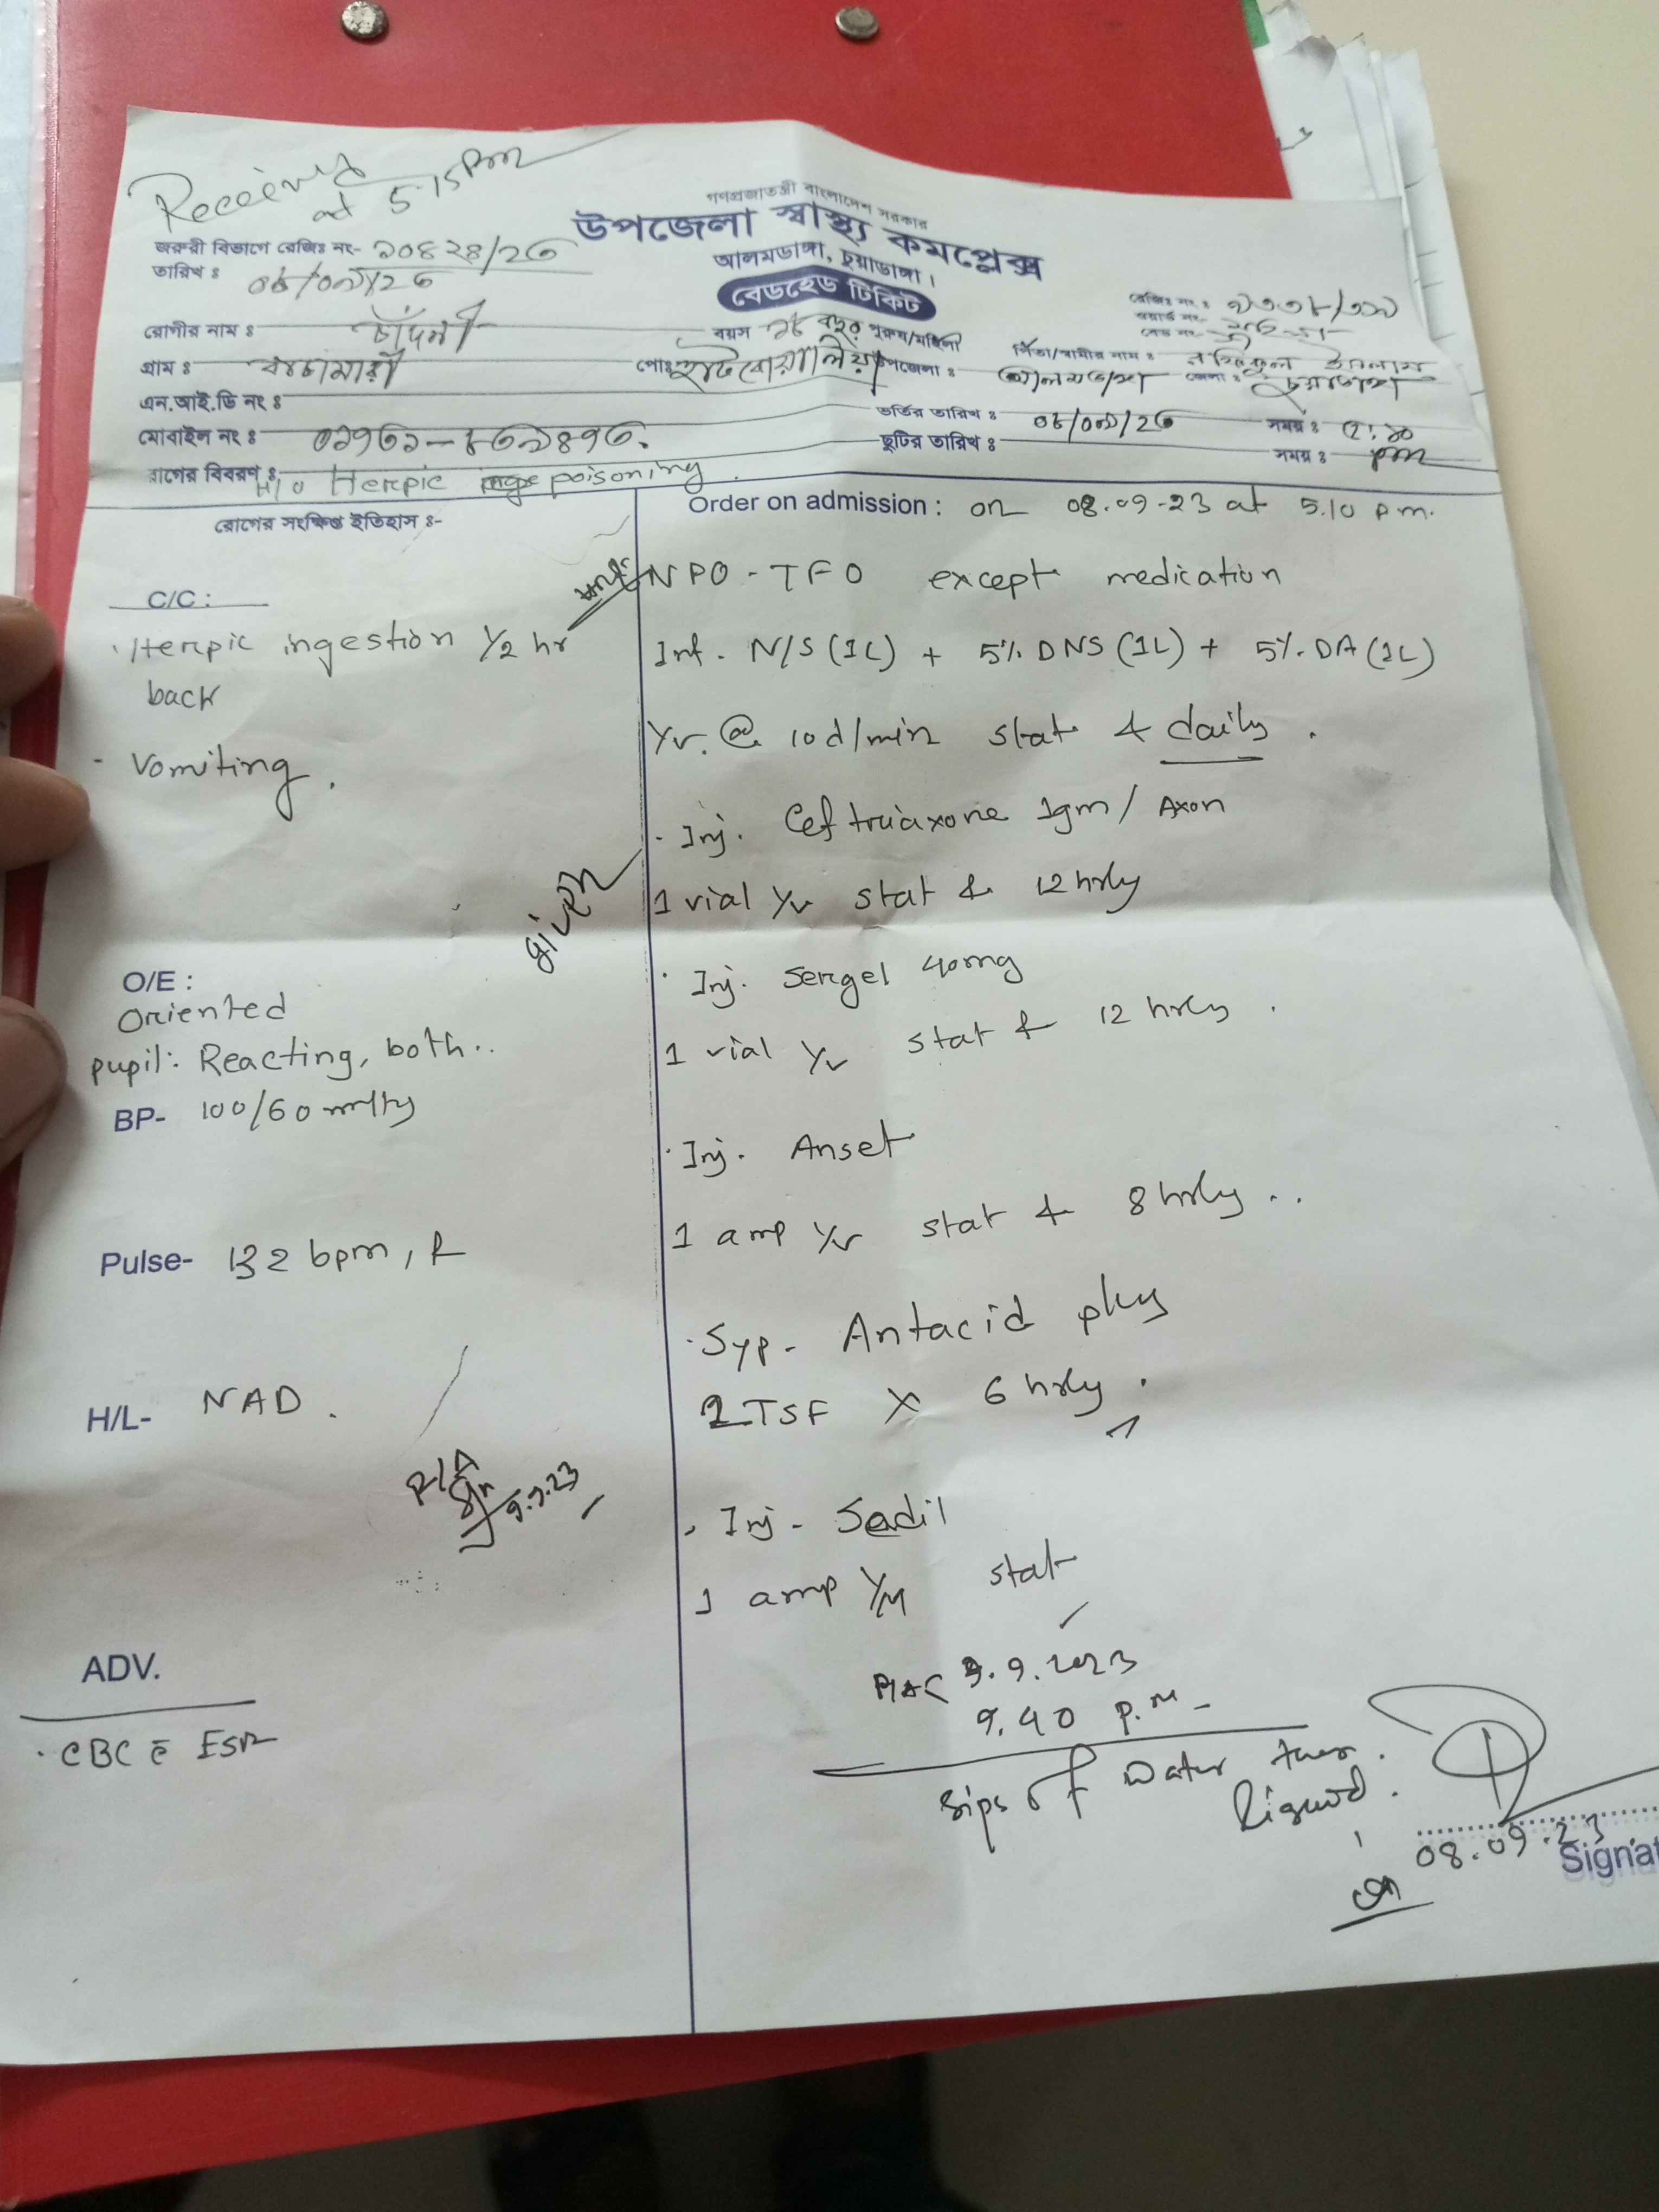 Received
at 5.15 pm
গণপ্রজাতন্ত্রী বাংলাদেশ সরকার
উপজেলা স্বাস্থ্য কমপ্লেক্স
আলমডাঙ্গা, চুয়াডাঙ্গা।
বেডহেড টিকিট
জরুরী বিভাগে রেজিঃ নং- ১০৪২৪/২৩
তারিখ ঃ ০৮/০৯/২৩
রেজিঃ নং ঃ
ওয়ার্ড নং-
বেড নং-
রোগীর নাম ঃ চাঁদনী বয়স ১৮ বছর পুরুষ/মহিলা পিতা/স্বামীর নাম ঃ ইসলাম
গ্রাম ঃ পোঃ হাটবোয়ালিয়া উপজেলা ঃ আলমডাঙ্গা জেলা ঃ চুয়াডাঙ্গা
এন.আই.ডি নং ঃ
ভর্তির তারিখ ঃ ০৮/০৯/২৩ সময় ঃ ৫:১০ pm
মোবাইল নং ঃ
ছুটির তারিখ ঃ সময় ঃ
রোগের বিবরণ ঃ- H/O Herpic poisoning.
রোগের সংক্ষিপ্ত ইতিহাস ঃ-
C/C :
Herpic ingestion 1/2 hr
back
- Vomiting.
O/E :
Oriented
pupil: Reacting, both..
BP- 100/60 mmHg
Pulse- 132 bpm, R
H/L- NAD.
9.9.23
ADV.
· CBC c̄ ESR
Order on admission : on 08.09-23 at 5.10 p.m.
NPO - TFO except medication
Inf. N/S (1L) + 5% DNS (1L) + 5% DA (1L)
I/v. @ 10d/min stat & daily.
given
· Inj. Ceftriaxone 1gm / Axon
1 vial I/v stat & 12 hrly
· Inj. Sergel 40mg
1 vial I/v stat & 12 hrly.
· Inj. Anset
1 amp I/v stat & 8 hrly..
· Syp- Antacid plus
2 TSF X 6 hrly.
· Inj- Sedil
1 amp I/M stat
9.9.2023
9.40 p.m-
Sips of water then
Liquid.
08.09.23